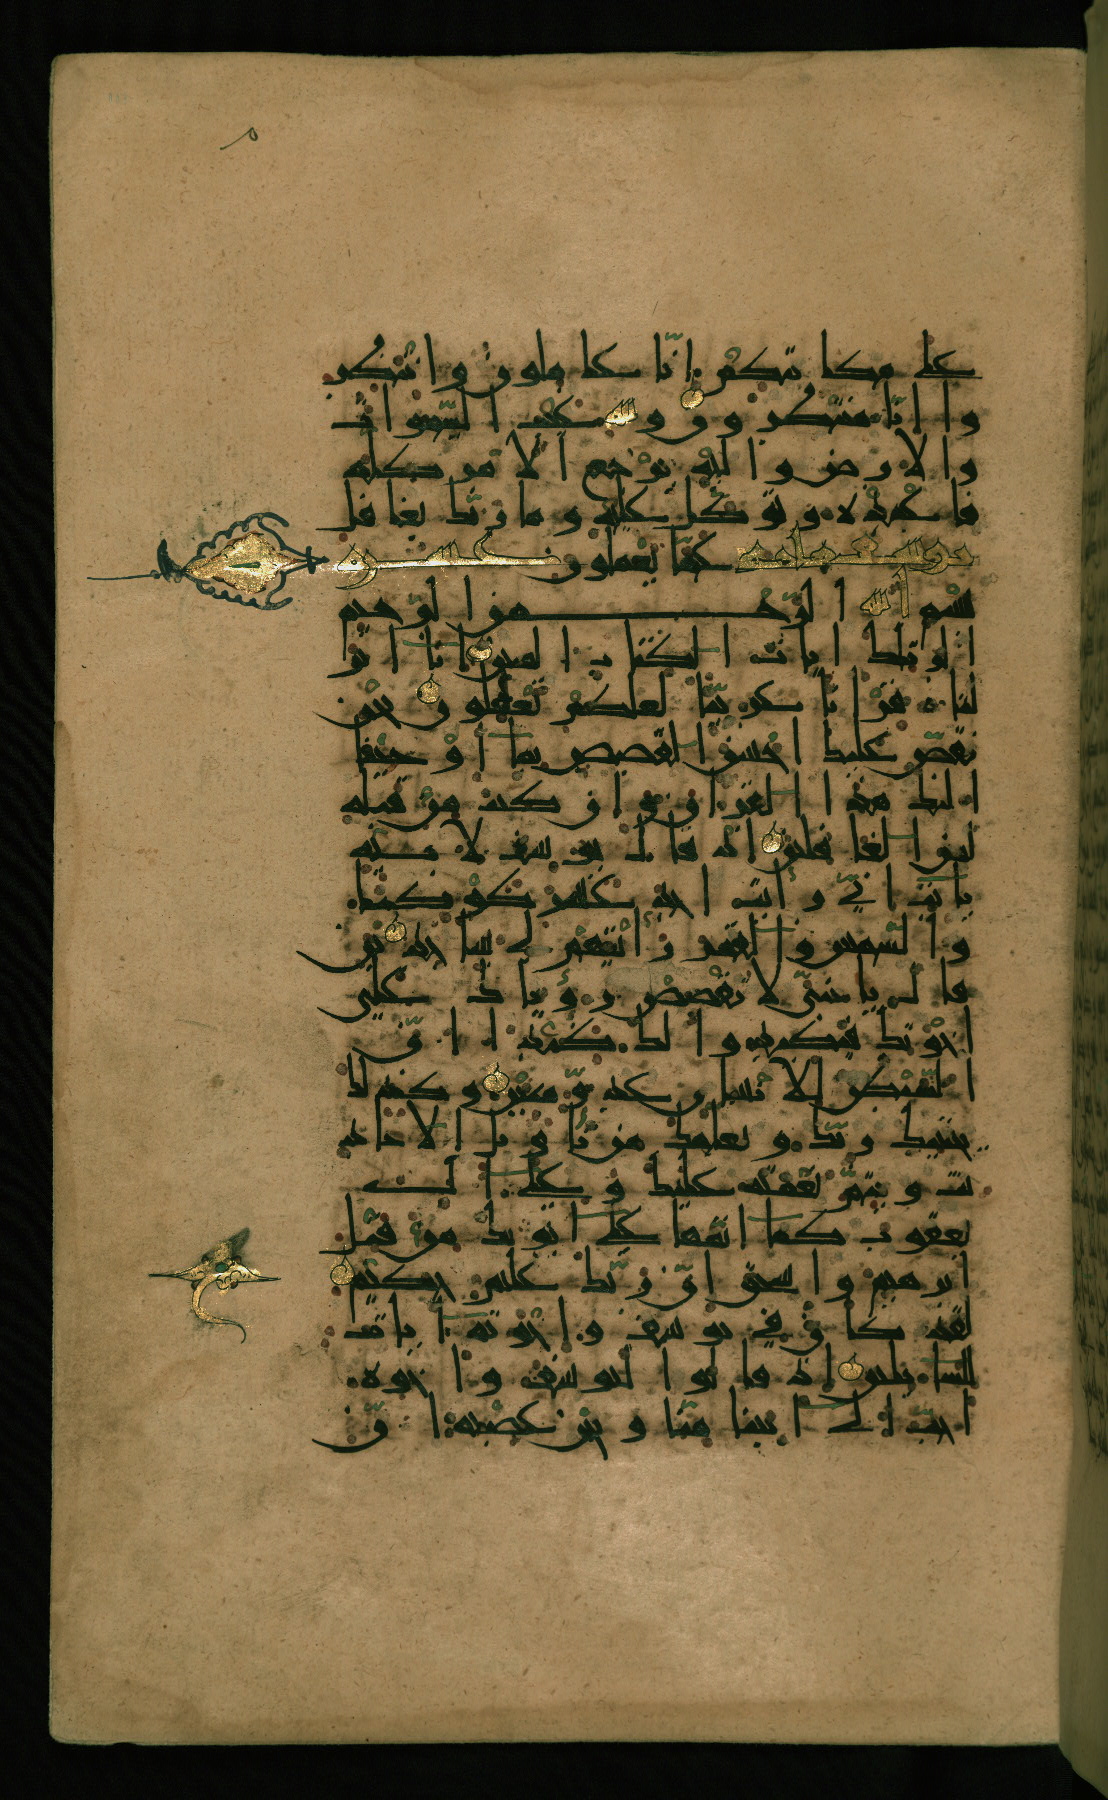 على مكانتكم انا عاملون وانتظر
وا انا منتظرون ولله غيب السموات
والارض واليه يرجع الامر كله
فاعبده وتوكل عليه وما ربك بغافل
عما يعملون
بسم الله الرحمن الرحيم
الر تلك ايات الكتاب المبين انا انز
لناه قرانا عربيا لعلكم تعقلون نحن
نقص عليك احسن القصص بما اوحينا
اليك هذا القران وان كنت من قبله
لمن الغافلين اذ قال يوسف لابيه
يا ابت اني رايت احد عشر كوكبا
والشمس والقمر رايتهم لي ساجدين
قال يا بني لا تقصص رؤياك على
اخوتك فيكيدوا لك كيدا ان
الشيطن للانسان عدو مبين وكذلك
يجتبيك ربك ويعلمك من تاويل الاحاد
يث ويتم نعمته عليك وعلى ال
يعقوب كما اتمها على ابويك من قبل
ابرهيم واسحق ان ربك عليم حكيم
لقد كان في يوسف واخوته ايات
للسايلين اذ قالوا ليوسف واخوه
احب الى ابينا منا ونحن عصبة ان